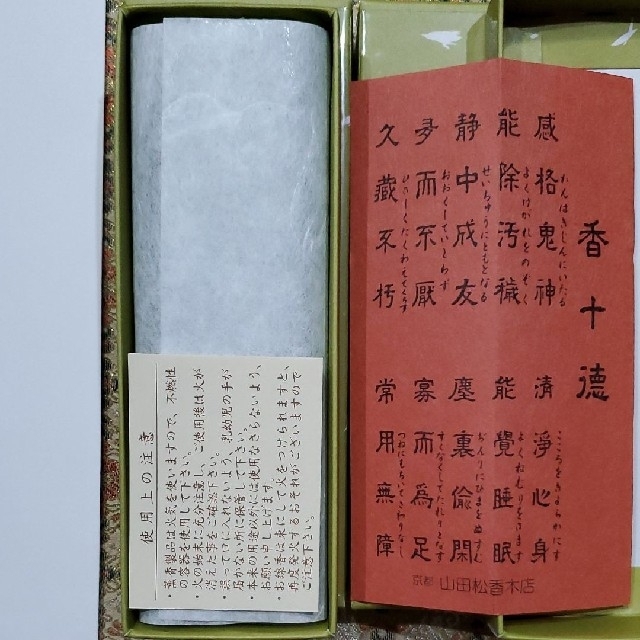 使用上の注意
・薫香製品は火気を使いますので、不燃性
の容器を使用して下さい。
・火の始末に充分注意し、ご使用後は火が
消えた事をご確認下さい。
・誤って口に入れないよう、乳幼児の手が
届かない所に保管して下さい。
・本来の用途以外には使用なさらないよう、
お願い申し上げます。
・お線香は束にして火をつけられますと、
再度発火するおそれがございますので
ご注意下さい。
香十徳
感格鬼神
清淨心身
こころをきよらかにす
能除汚穢
よくけがれをのぞく
能覺睡眠
よくねむりをさます
静中成友
せいちゅうにともとなる
塵裏偸閑
じんりにひまをぬすむ
多而不厭
おおくしていとわず
寡而為足
すくなくしてたれりとなす
久藏不朽
ひさしくたくわえてくちず
常用無障
つねにもちいてさわりなし
京都 山田松香木店